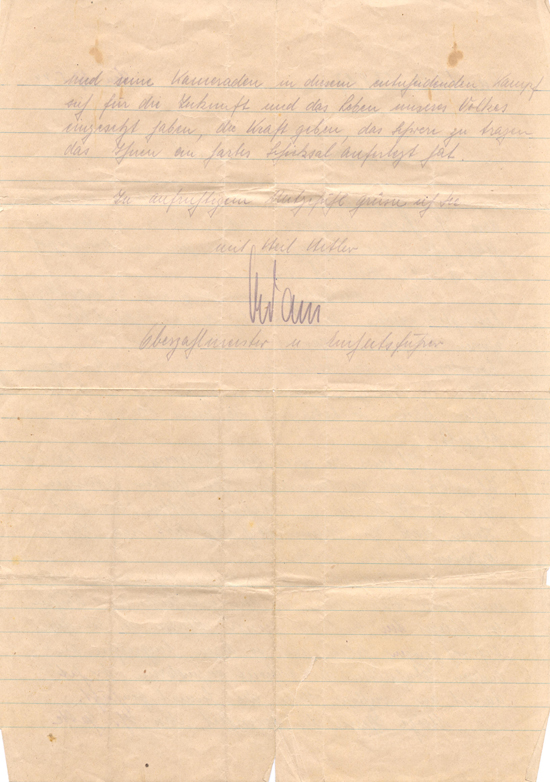 und seine Kameraden in diesem entscheidenden Kampf
sich für die Zukunft und das Leben unseres Volkes
eingesetzt haben, die Kraft geben das Schwere zu tragen
das Ihnen ein hartes Schicksal auferlegt hat.
In aufrichtigem Mitgefühl grüsse ich Sie
mit Heil Hitler
Oberzahlmeister u. Einheitsführer